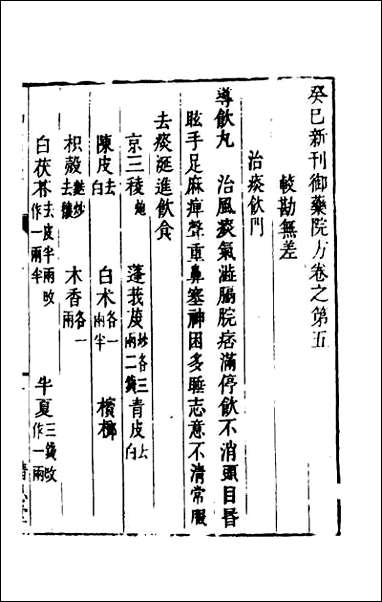 癸巳新刊御藥院方卷之第五
較勘無差
治痰飲門
導飲丸 治風痰氣滋膈脘痞滿停飲不消頭目昏
眩手足麻痺聲重鼻塞神困多睡志意不清常服
去痰涎進飲食
京三稜炮 蓬莪茂炒各三兩二錢 青皮去白
陳皮去白 白朮各一兩半 檳榔
枳殼去穰麩炒 木香各一兩
白茯苓去皮半兩改作一兩半 半夏三錢改作一兩